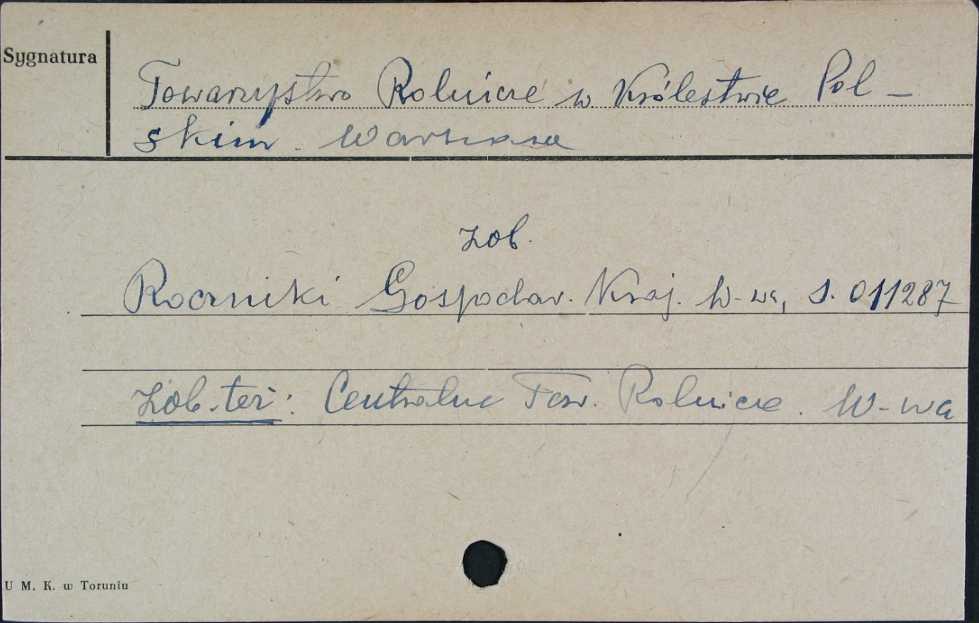 Sygnatura
Towarzystwo Rolnicze w Królestwie Pol-
skim. Warszawa
zob.
Roczniki Gospodar. Kraj. W-wa, S. 011287
Zob. też: Centralne Tow. Rolnicze. W-wa
U M. K. w Toruniu